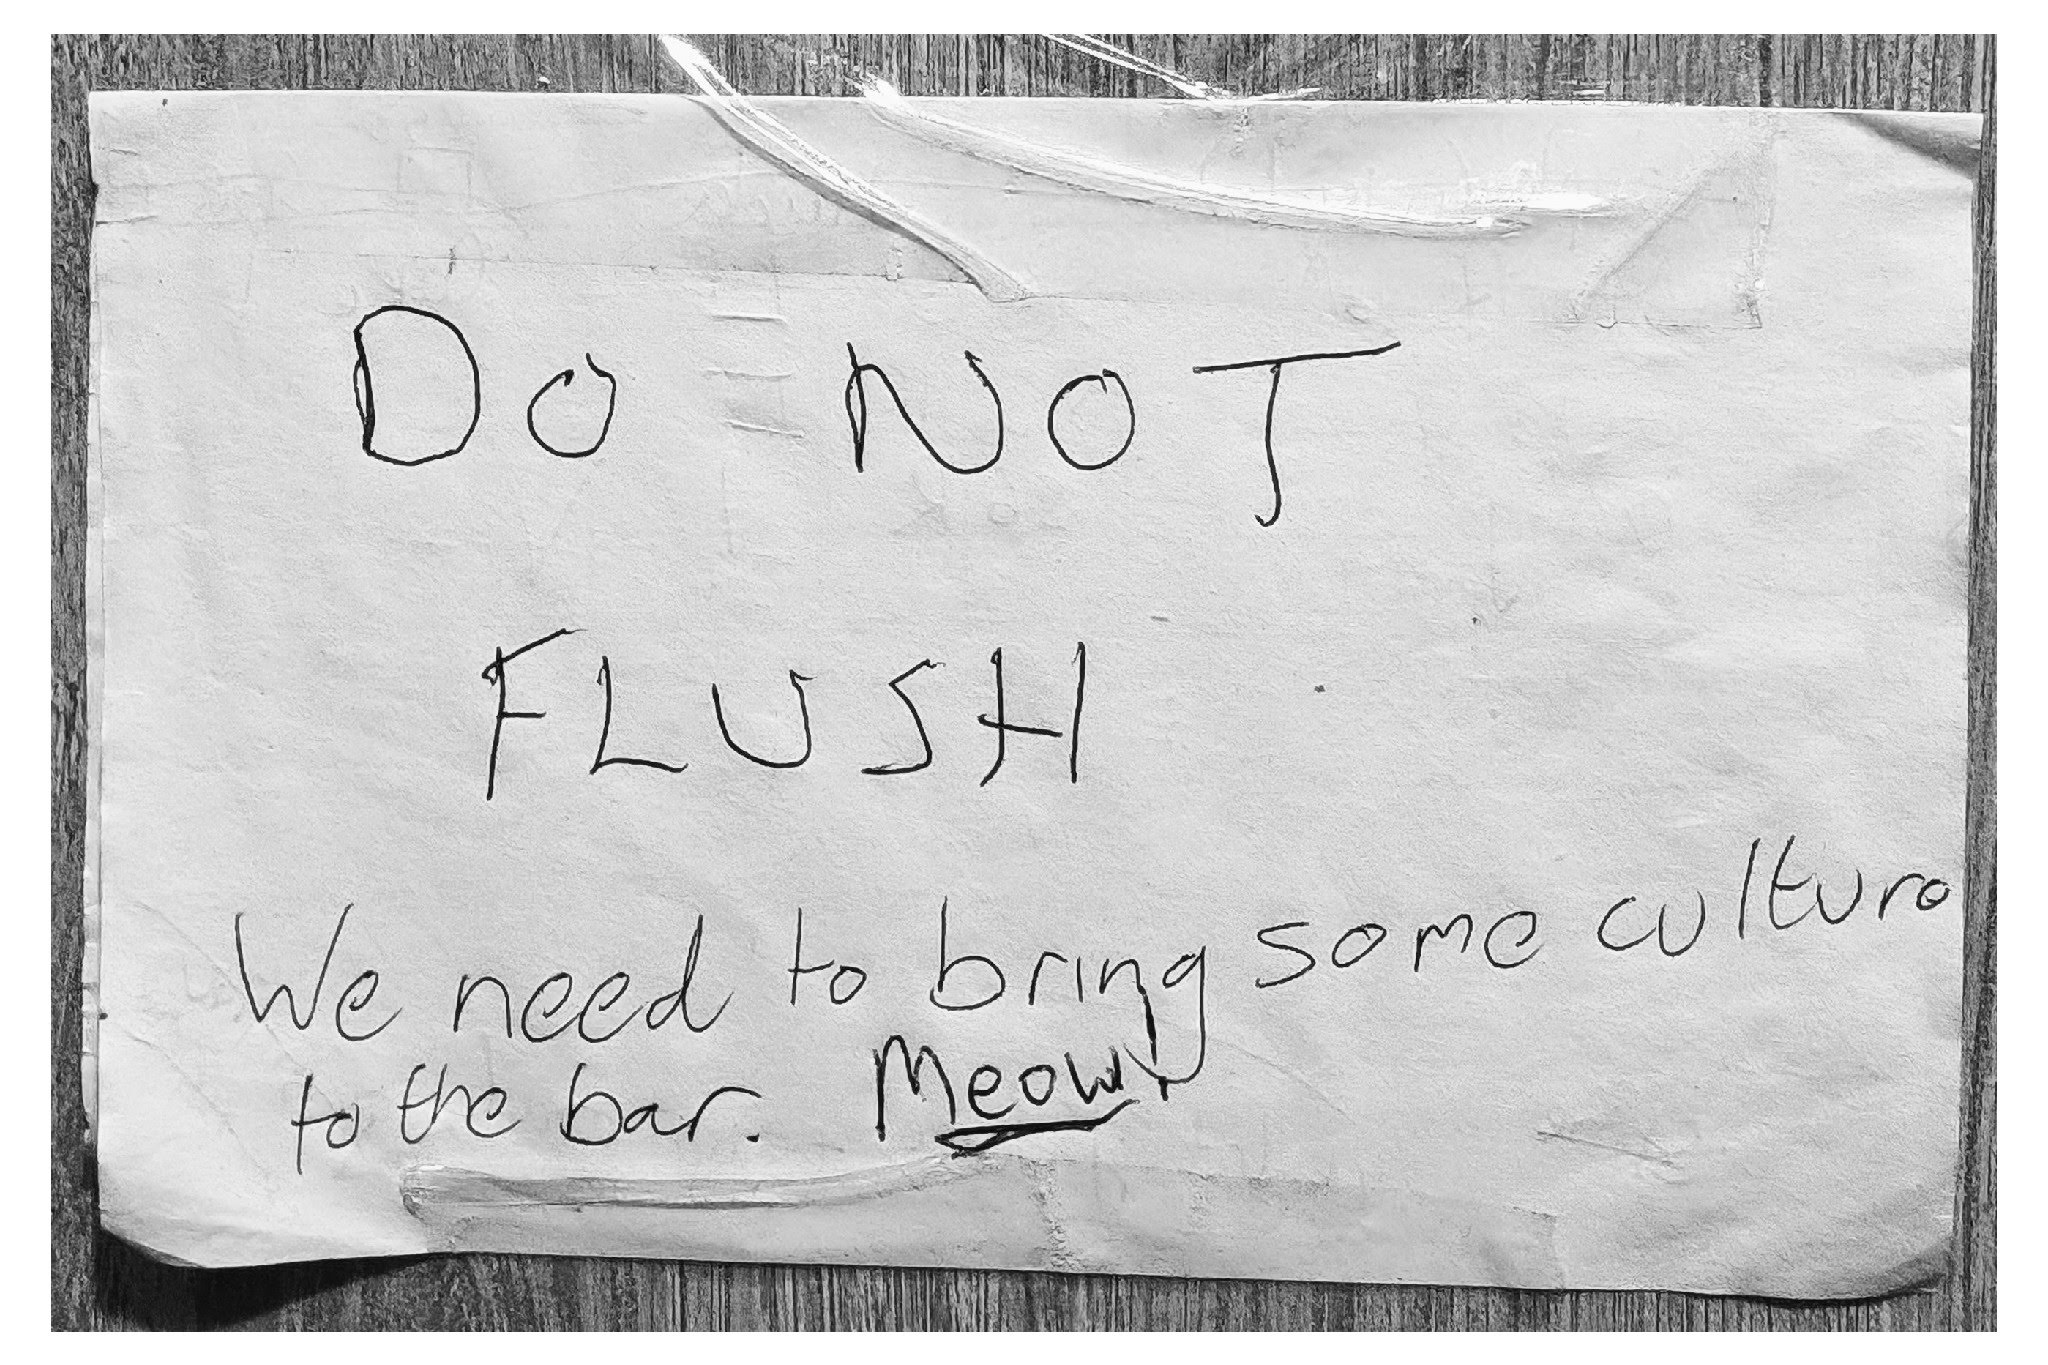 DO NOT
FLUSH
We need to bring some culture
to the bar. Meow